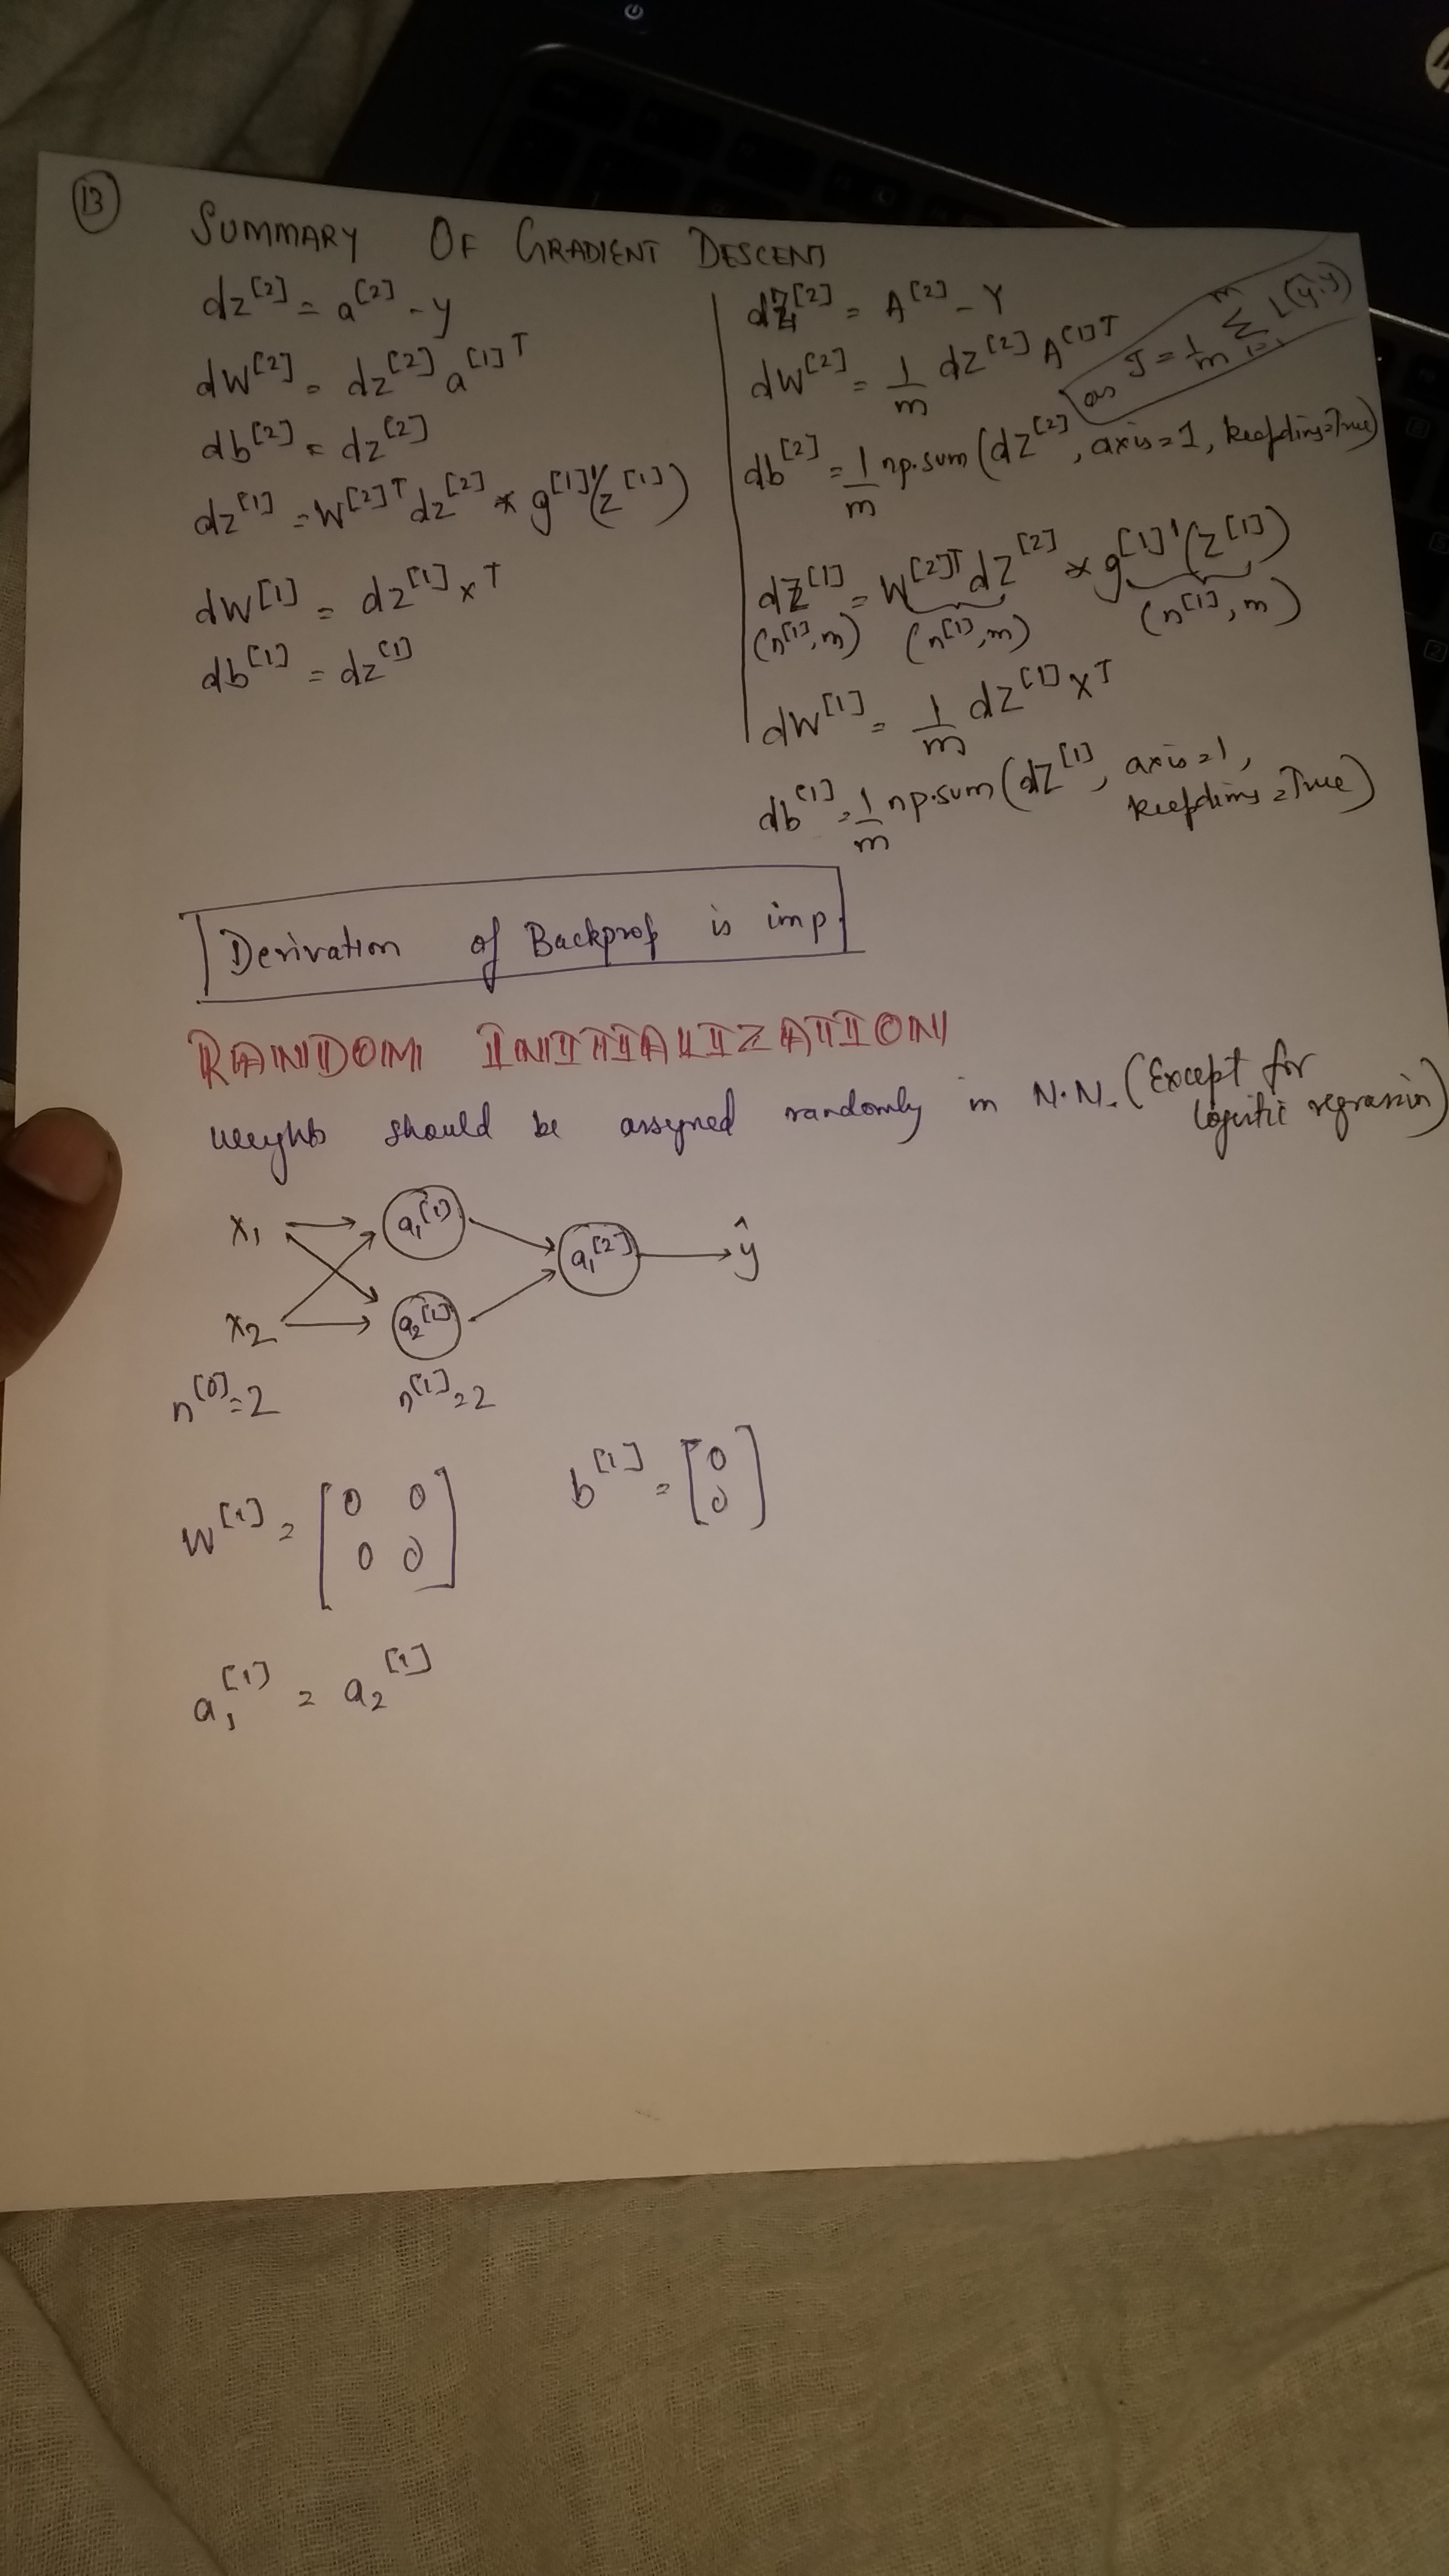 13
SUMMARY OF GRADIENT DESCENT
dz^[2] = a^[2] - y
dW^[2] = dz^[2] a^[1]T
db^[2] = dz^[2]
dz^[1] = W^[2]T dz^[2] * g^[1]'(z^[1])
dW^[1] = dz^[1] x^T
db^[1] = dz^[1]
dZ^[2] = A^[2] - Y
dW^[2] = 1/m dZ^[2] A^[1]T
as J = 1/m Σ_{i=1}^{m} L(ŷ, y)
db^[2] = 1/m np.sum(dZ^[2], axis=1, keepdims=True)
dZ^[1] = W^[2]T dZ^[2] * g^[1]'(Z^[1])
(n^[1], m) (n^[1], m) (n^[1], m)
dW^[1] = 1/m dZ^[1] X^T
db^[1] = 1/m np.sum(dZ^[1], axis=1,
keepdims=True)
Derivation of Backprop is imp.
RANDOM INITIALIZATION
weights should be assigned randomly in N.N. (Except for
logistic regression)
x₁ a₁^[1]
a₁^[2] ŷ
x₂ a₂^[1]
n^[0] = 2 n^[1] = 2
W^[1] = [0 0
0 0]
b^[1] = [0
0]
a₁^[1] = a₂^[1]